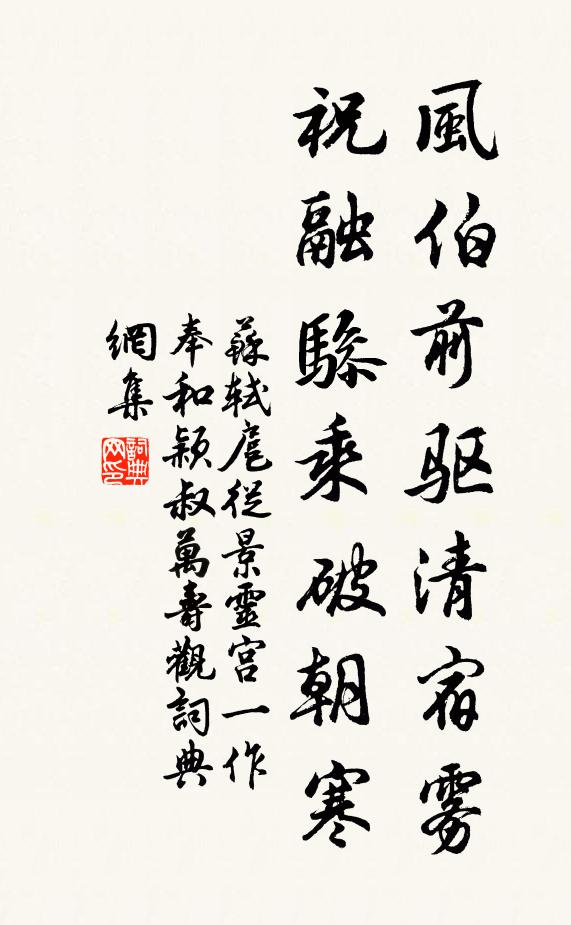 風伯前驱清宿雾
祝融驂乘破朝寒
蘇軾扈從景靈宫一作
奉和穎叔萬壽觀詞典
網集
詞典网印